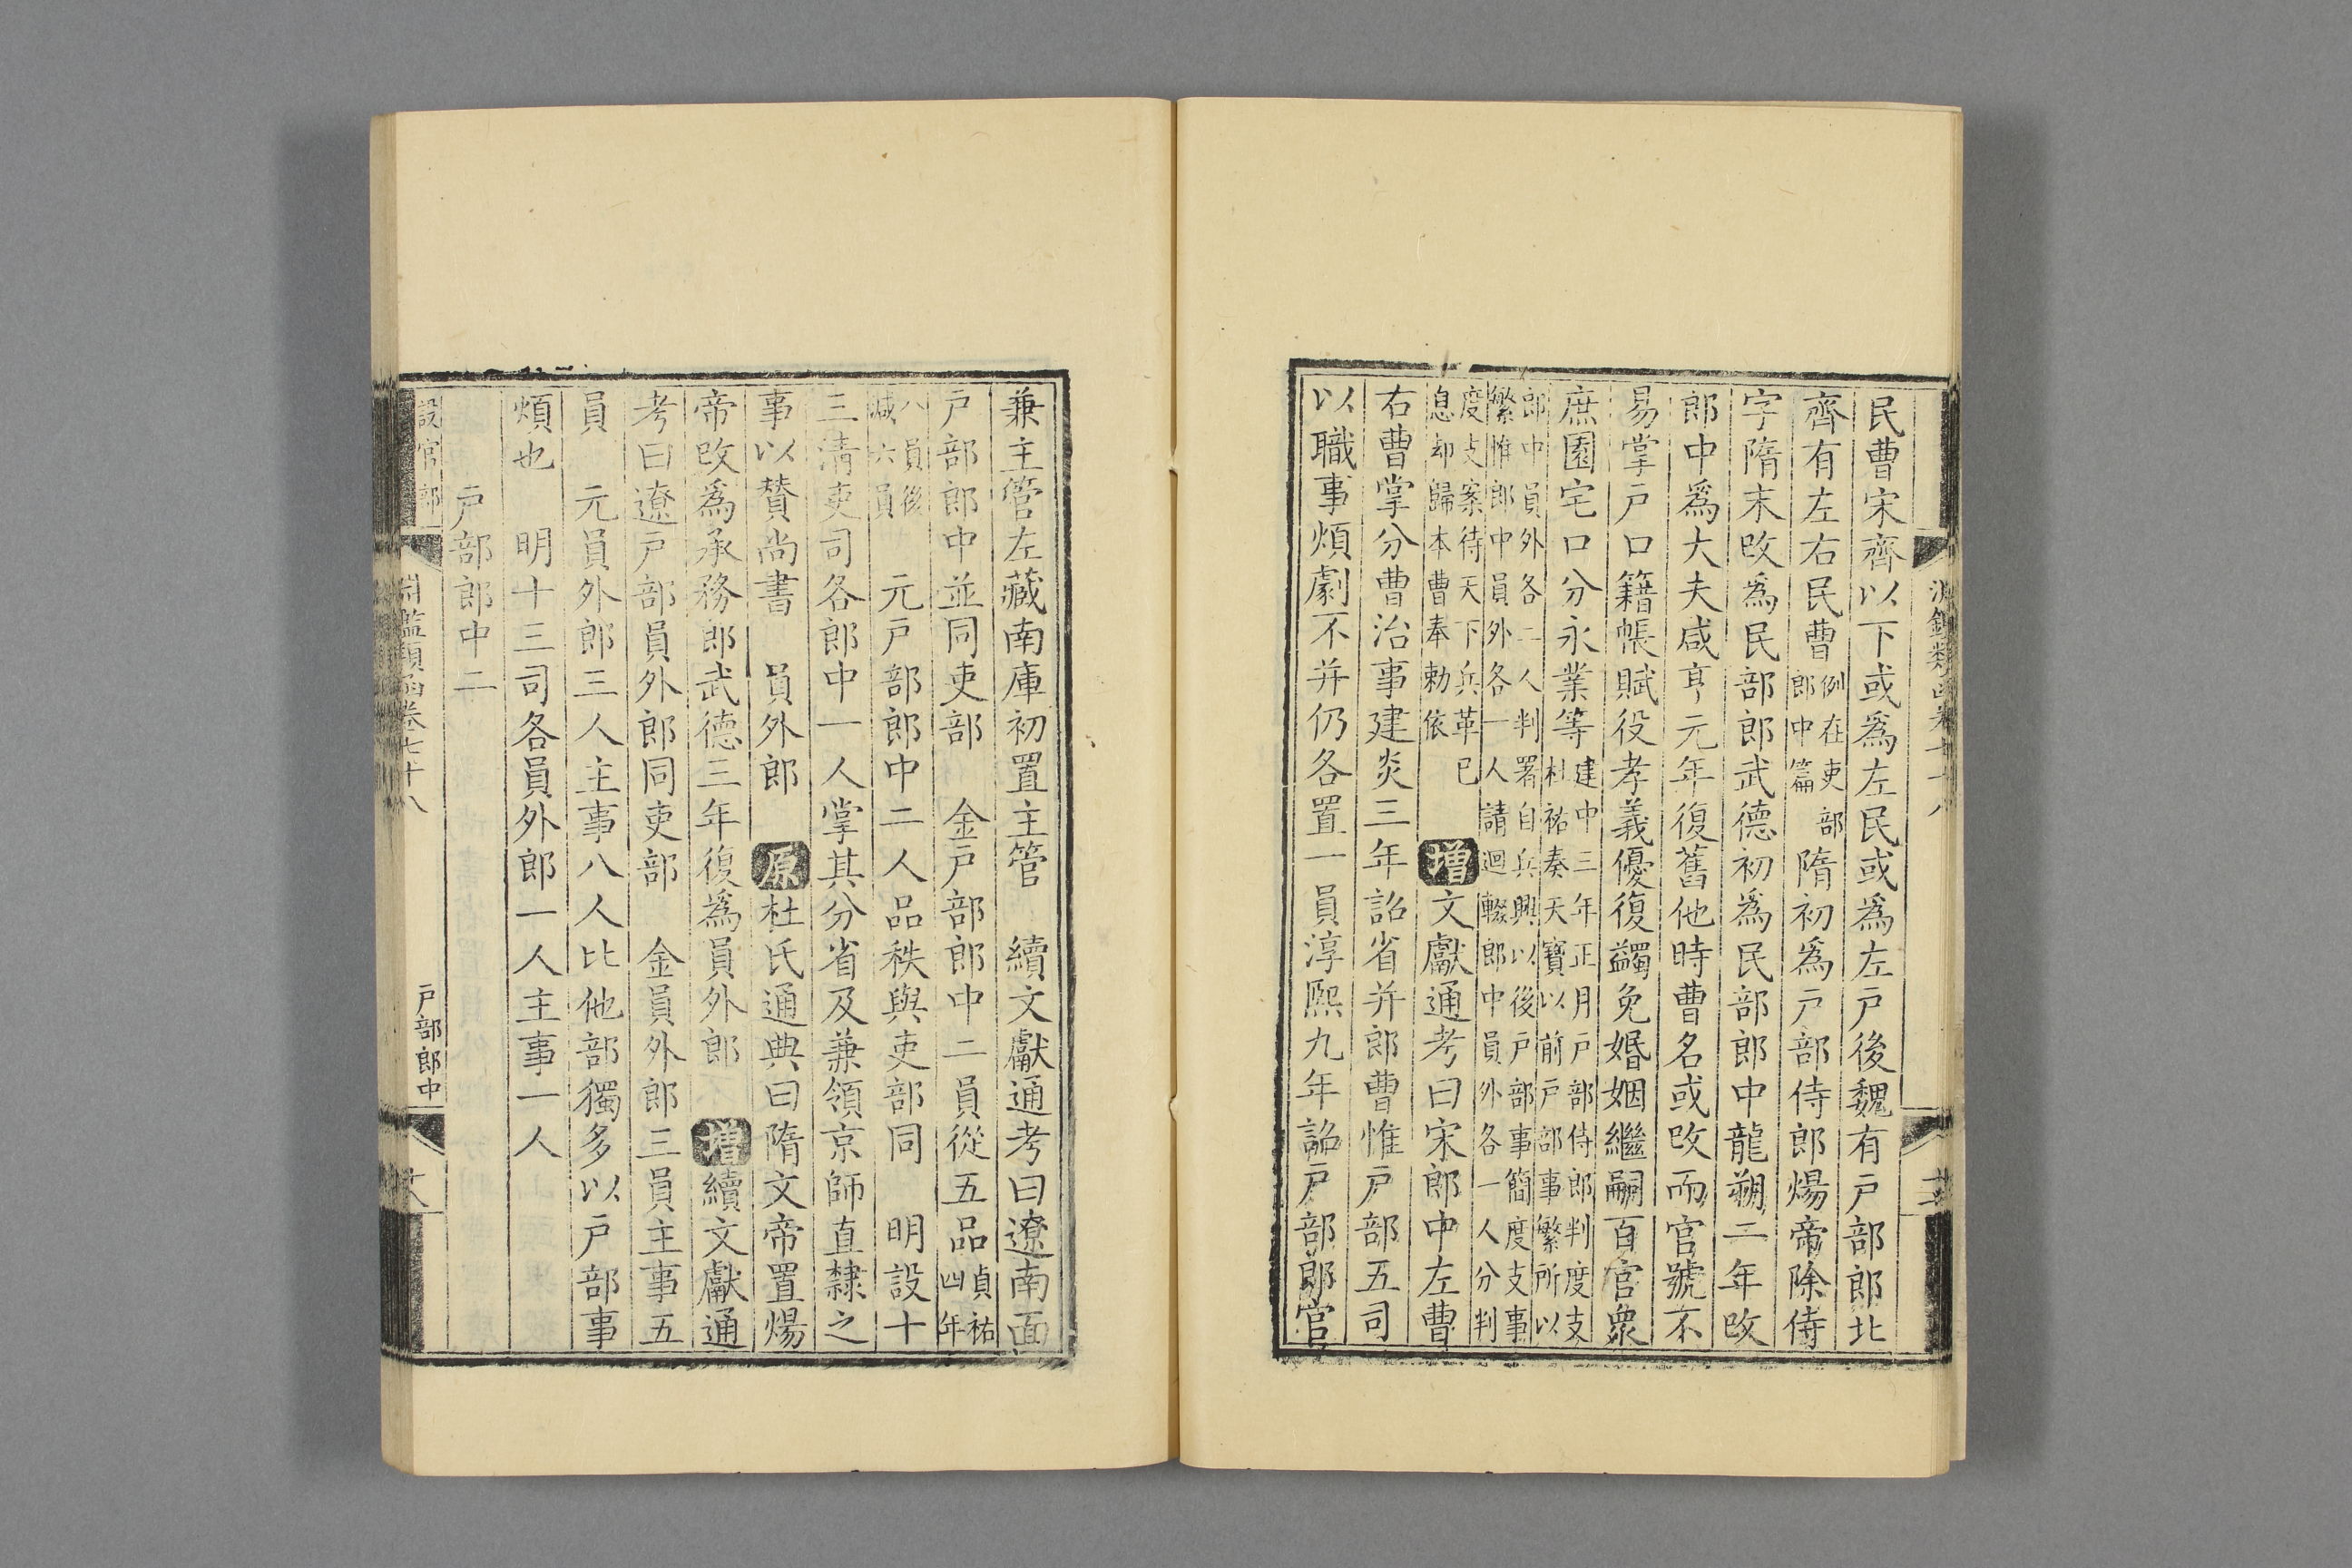 民曹宋齊以下或爲左民或爲左戸後魏有戸部郎北
齊有左右民曹例在吏部郎中篇隋初爲戸部侍郎煬帝除侍
字隋末改爲民部郎武德初爲民部郎中龍朔二年改
郎中爲大夫咸亨元年復舊他時曹名或改而官號不
易掌戸口籍帳賦役孝義優復蠲免婚姻繼嗣百官衆
庶園宅口分永業等建中三年正月戸部侍郎判度支杜祐奏天寶以前戸部事繁所以
郎中員外各二人判署自兵興以後戸部事簡度支事繁惟郎中員外各一人請迴輟郎中員外各一人分判
度支案待天下兵革已息却歸本曹奉勅依增文獻通考曰宋郎中左曹
右曹掌分曹治事建炎三年詔省并郎曹惟戸部五司
以職事煩劇不并仍各置一員淳熙九年詔戸部郎官
兼主管左藏南庫初置主管 續文獻通考曰遼南面
戸部郎中並同吏部 金戸部郎中二員從五品貞祐四年
八員後減六員 元戸部郎中二人品秩與吏部同 明設十
三清吏司各郎中一人掌其分省及兼領京師直隸之
事以賛尚書 員外郎 原杜氏通典曰隋文帝置煬
帝改爲承務郎武德三年復爲員外郎 增續文獻通
考曰遼戸部員外郎同吏部 金員外郎三員主事五
員 元員外郎三人主事八人比他部獨多以戸部事
煩也 明十三司各員外郎一人主事一人
戸部郎中二
設官部 淵鑑類函卷七十八 戸部郎中